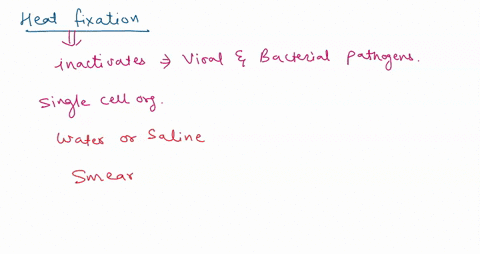 Heat fixation
inactivates → Viral & Bacterial pathogens.
Single cell org.
Water or Saline
Smear